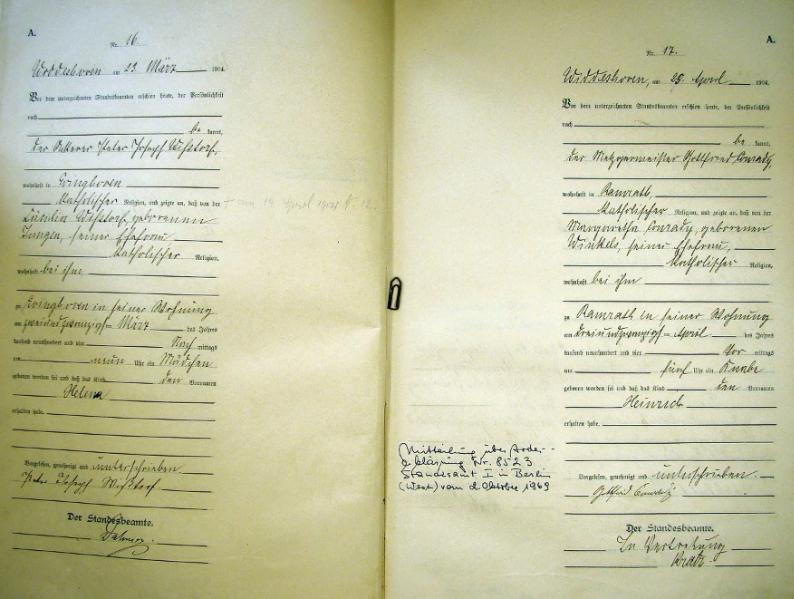 A.
Nr. 16.
am 23. März 1904.
Vor dem unterzeichneten Standesbeamten erschien heute, der Persönlichkeit
nach
be kannt,
der Peter Joseph
wohnhaft in
katholischer Religion, und zeigte an, daß von der
geborenen
seiner Ehefrau
katholischer Religion,
wohnhaft bei ihm
zu in seiner Wohnung
am zweiundzwanzigsten März des Jahres
tausend neunhundert und vier Nach mittags
um neun Uhr ein Mädchen
geboren worden sei und daß das Kind den Vornamen
Helena
erhalten habe.
Vorgelesen, genehmigt und unterschrieben
Peter Joseph
Der Standesbeamte.
† am 14 April 1904 N. 12.
A.
Nr. 17.
am 23. April 1904.
Vor dem unterzeichneten Standesbeamten erschien heute, der Persönlichkeit
nach
be kannt,
der Metzgermeister Gottfried Conrady,
wohnhaft in Ramrath,
katholischer Religion, und zeigte an, daß von der
Margaretha Conrady, geborenen
Winkels, seiner Ehefrau,
katholischer Religion,
wohnhaft bei ihm
zu Ramrath in seiner Wohnung
am dreiundzwanzigsten April des Jahres
tausend neunhundert und vier Vor mittags
um fünf Uhr ein Knabe
geboren worden sei und daß das Kind den Vornamen
Heinrich
erhalten habe.
Vorgelesen, genehmigt und unterschrieben.
Gottfried Conrady
Der Standesbeamte.
In Vertretung
Mitteilung über Todes-
erklärung Nr. 8523
Standesamt I in Berlin
(West) vom 2. Oktober 1969